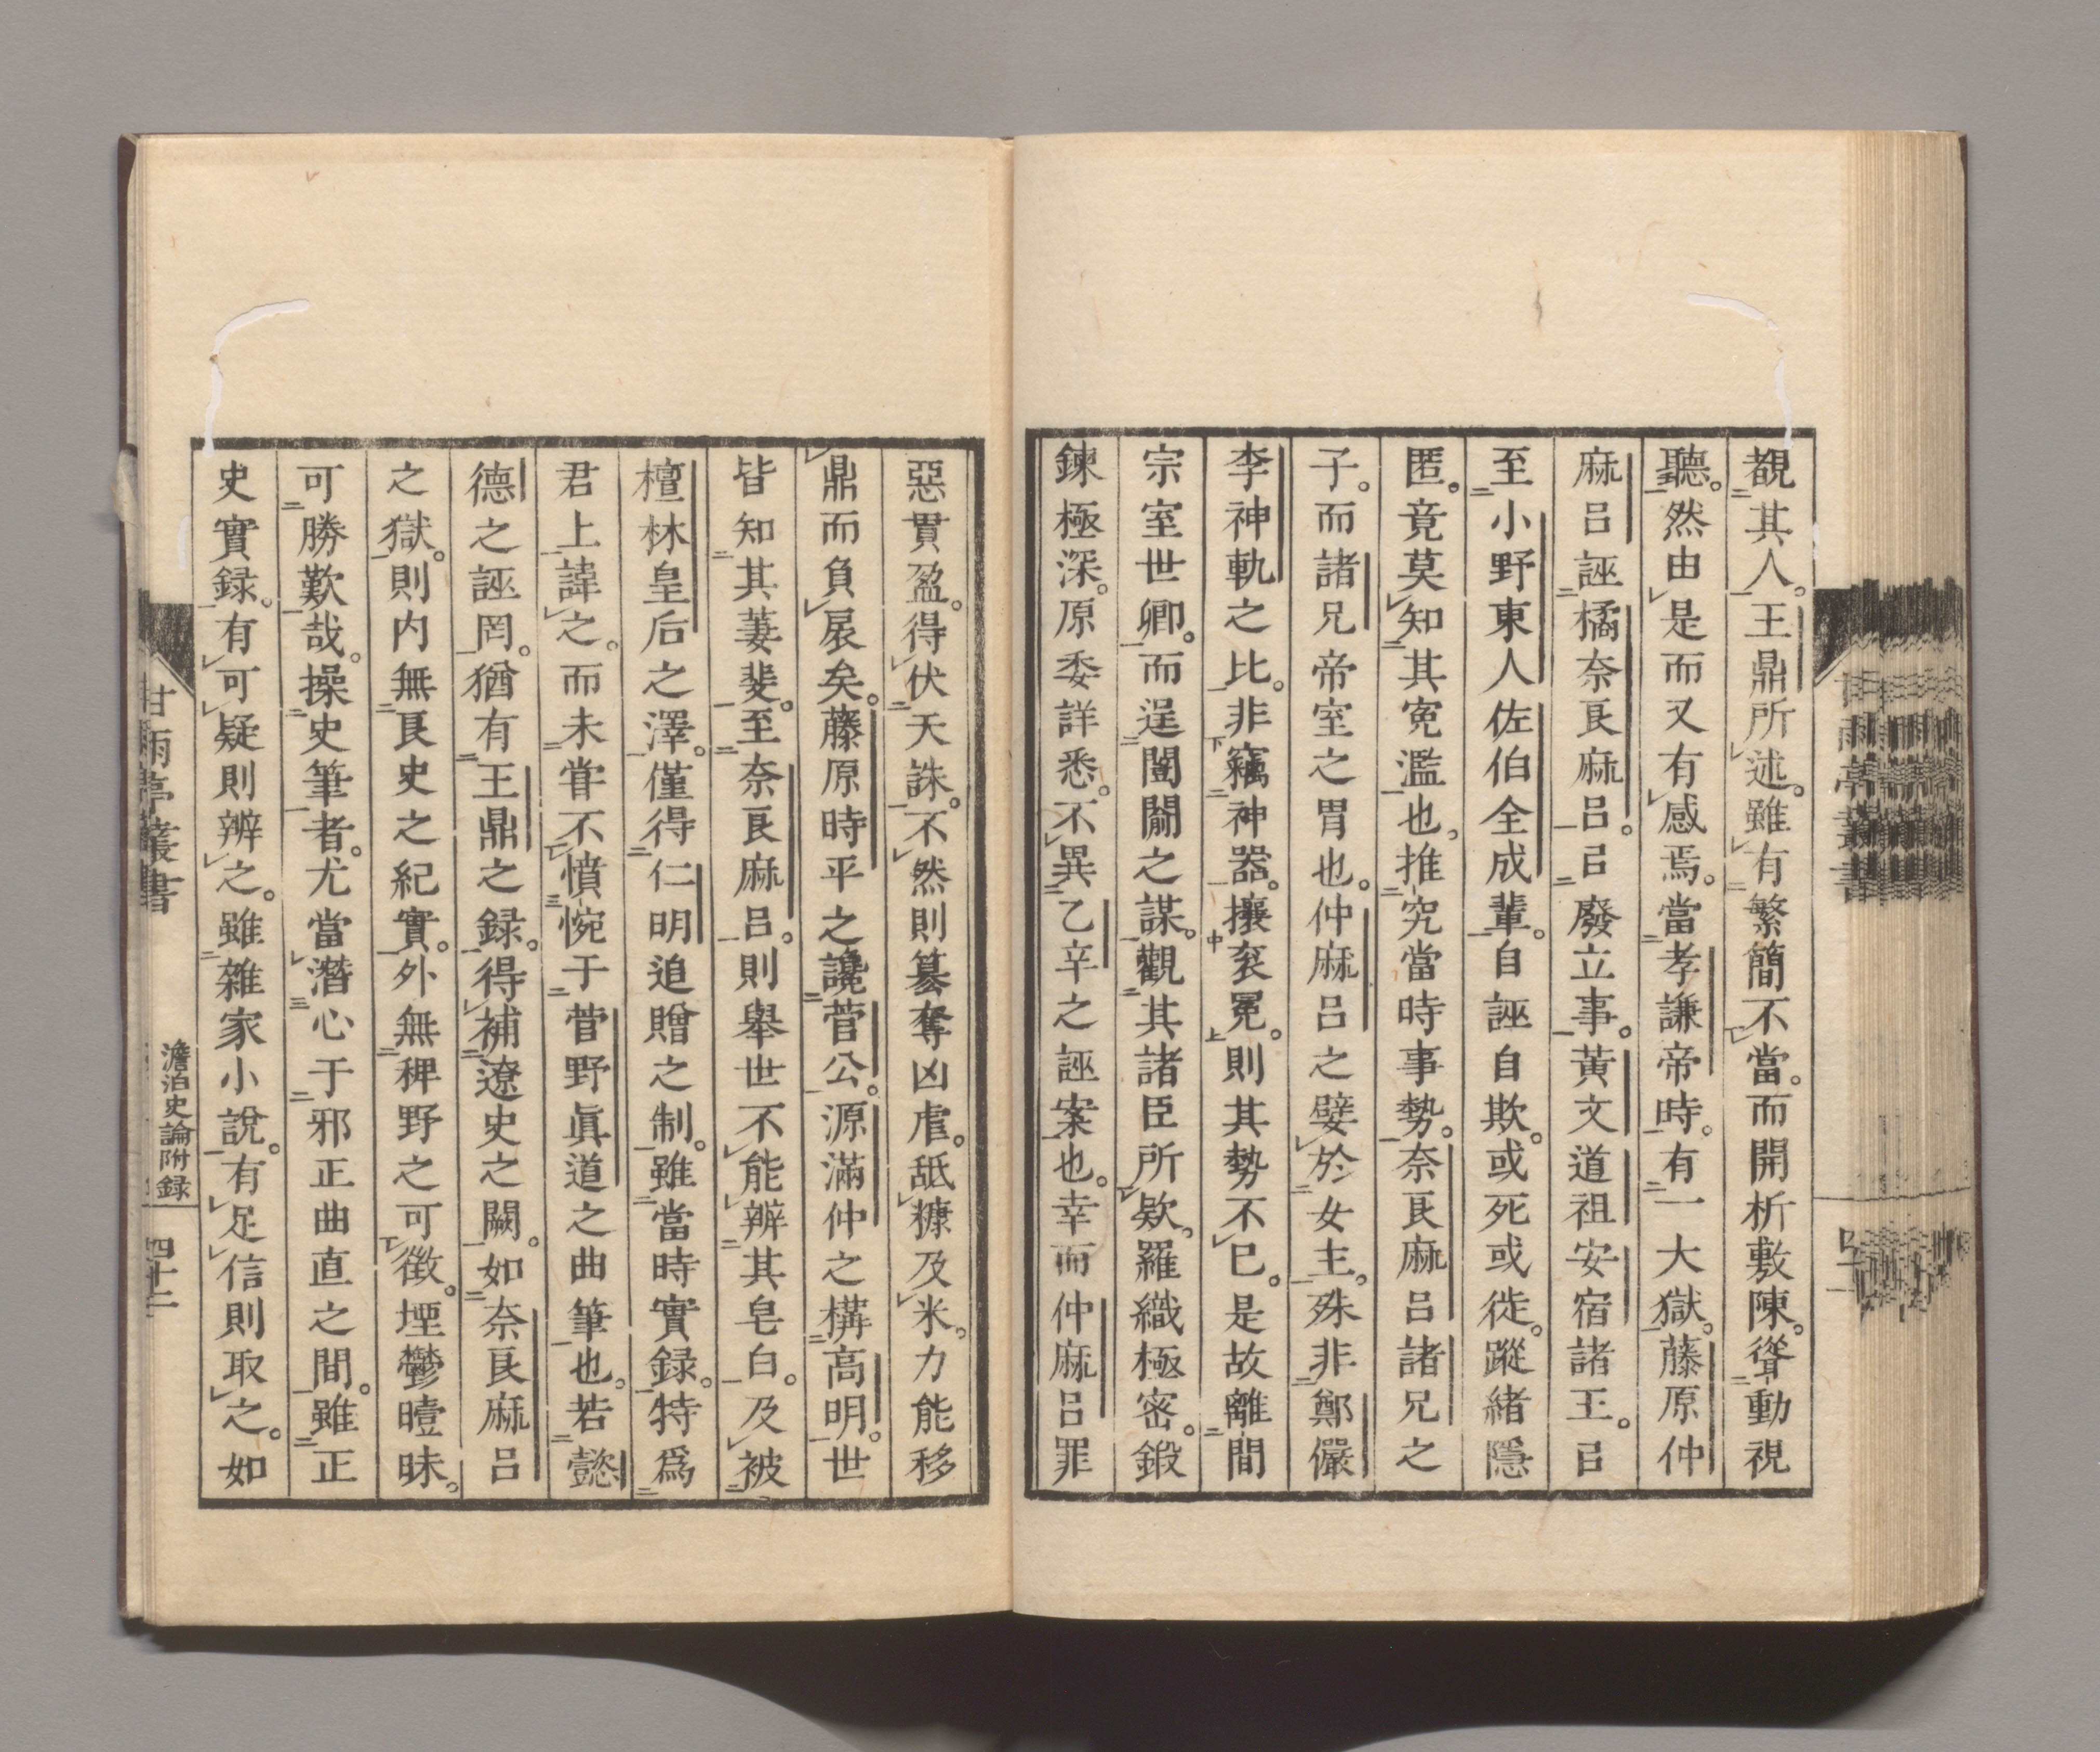 覩其人。王鼎所述。雖有繁簡不當。而開析敷陳。聳動視
聽。然由是而又有感焉。當孝謙帝時。有一大獄。藤原仲
麻呂誣橘奈良麻呂。㠯廢立事。黃文道祖安宿諸王。㠯
至小野東人佐伯全成輩。自誣自欺。或死或徙。蹤緒隱
匿。竟莫知其寃濫也。推究當時事勢。奈良麻呂諸兄之
子。而諸兄帝室之胃也。仲麻呂之嬖於女主。殊非鄭儼
李神軌之比。非竊神器。攘衮冕。則其勢不已。是故離間
宗室世卿。而逞闥闈之謀。觀其諸臣所欵。羅織極密。鍛
鍊極深。原委詳悉。不異乙辛之誣案也。幸而仲麻呂罪
惡貫盈。得伏天誅。不然則簒奪凶虐。舐糠及米。力能移
鼎而負扆矣。藤原時平之讒菅公。源滿仲之構高明。世
皆知其萋斐。至奈良麻呂。則舉世不能辨其皂白。及被
檀林皇后之澤。僅得仁明追贈之制。雖當時實録。特爲
君上諱之。而未甞不憤惋于菅野眞道之曲筆也。若懿
德之誣罔。猶有王鼎之録。得補遼史之闕。如奈良麻呂
之獄。則内無良史之紀實。外無稗野之可徵。堙鬱曀昧。
可勝歎哉。操史筆者。尤當潛心于邪正曲直之間。雖正
史實録。有可疑則辨之。雖雜家小說。有足信則取之。如
甘雨亭叢書
澹泊史論附録
四十二